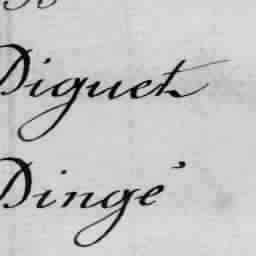 Diguet
Dingé